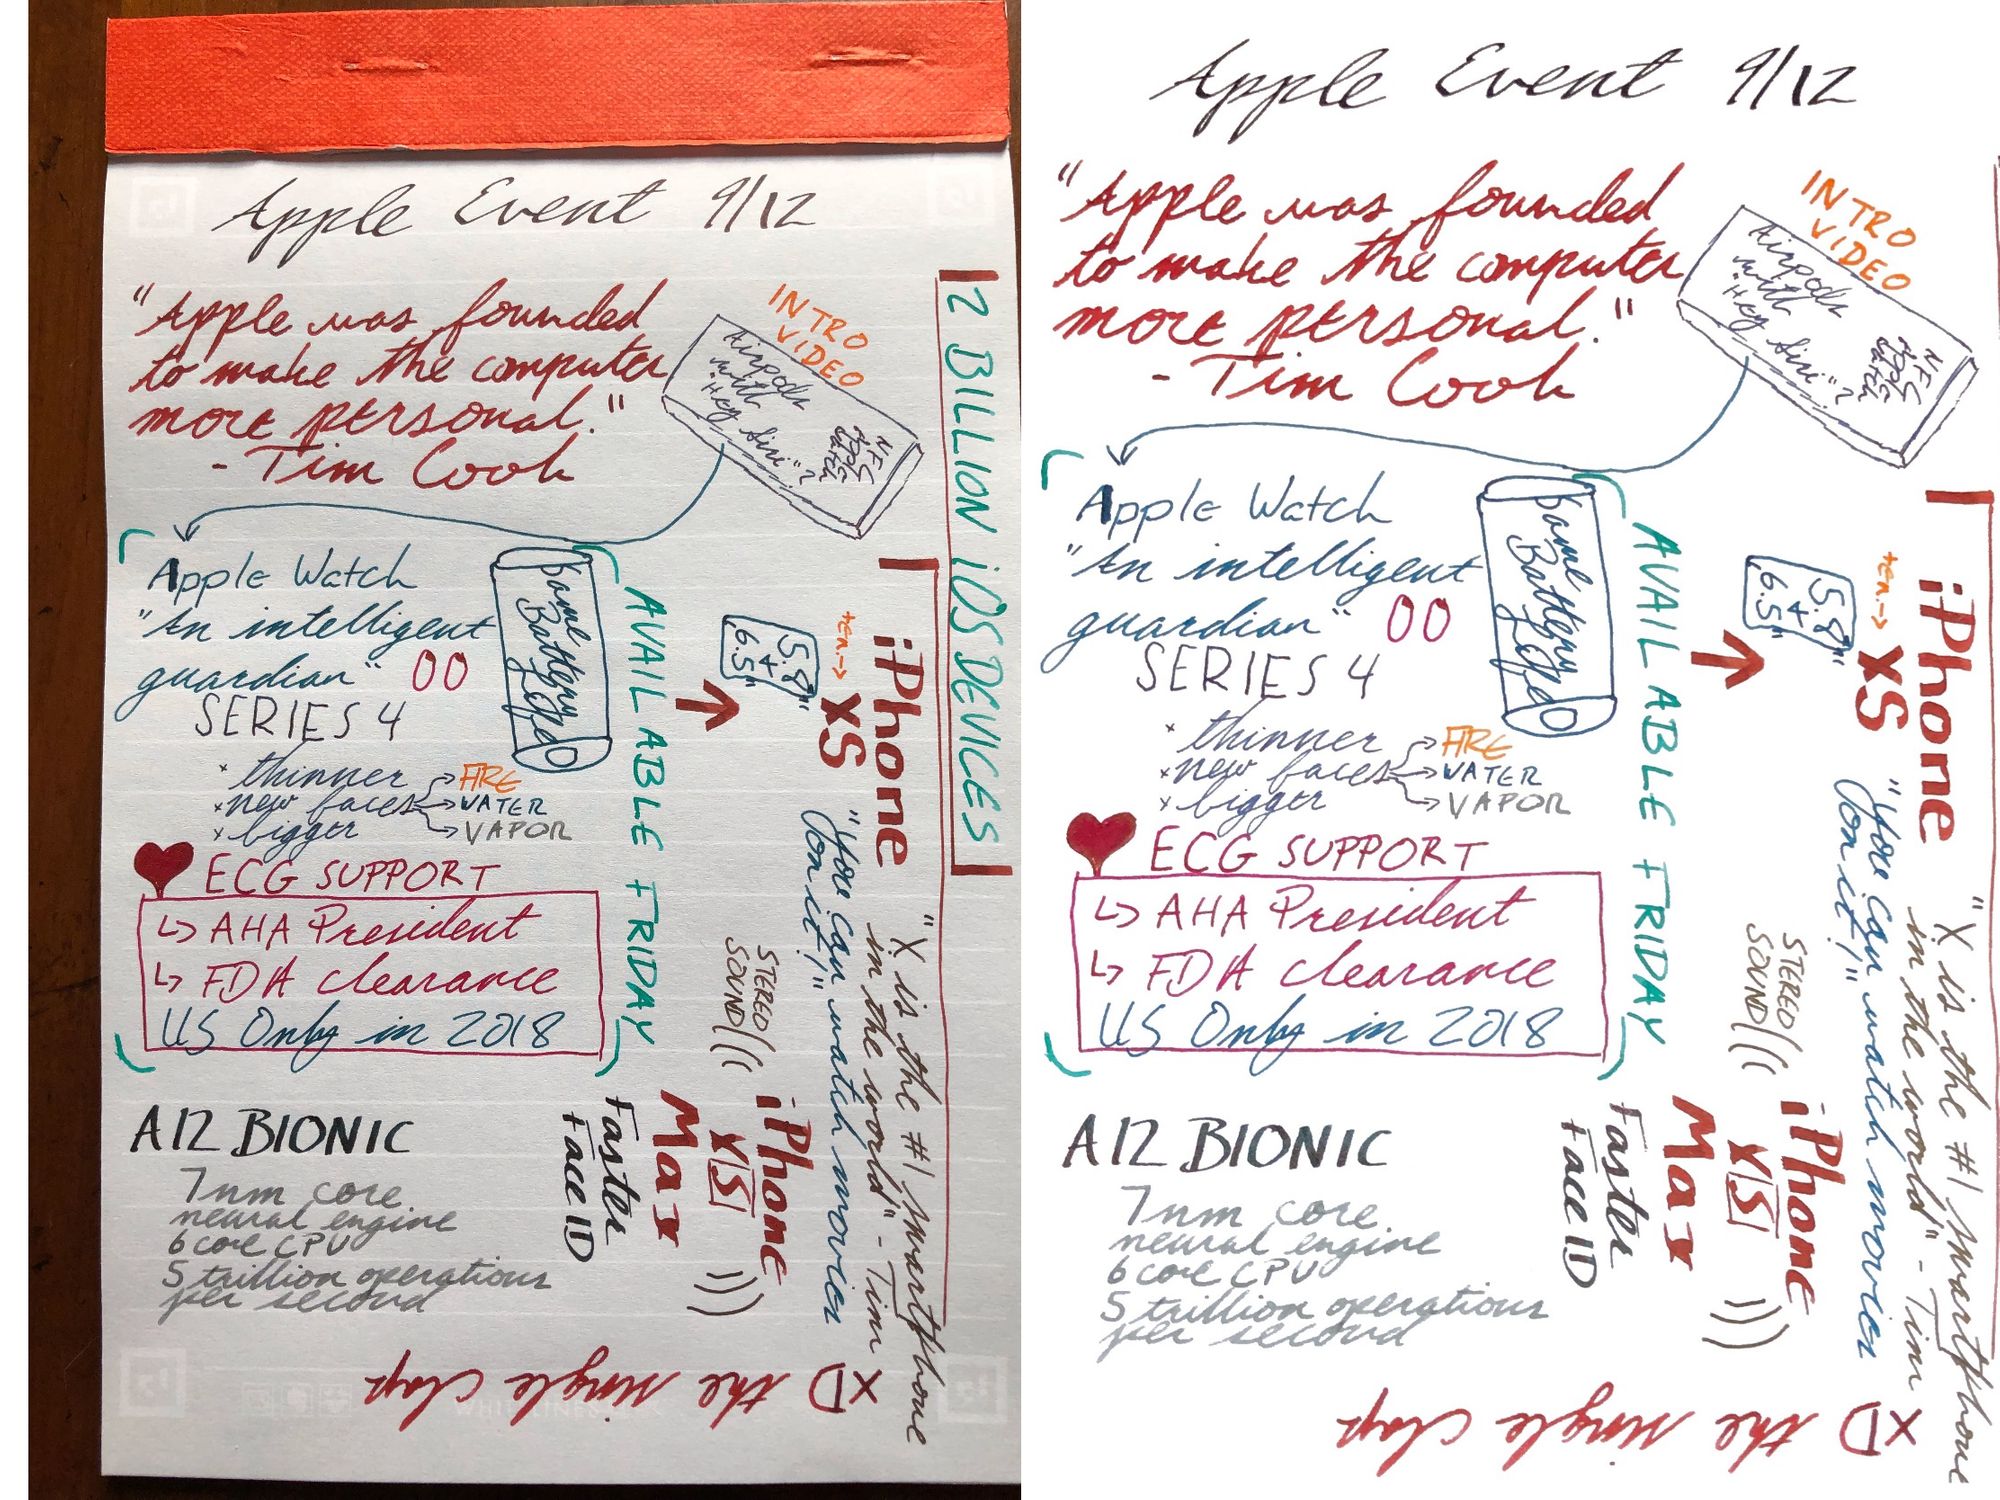 Apple Event 9/12
"Apple was founded
to make the computer
more personal."
- Tim Cook
INTRO
VIDEO
Airpods
with
"Hey Siri"?
NFC
Apple
Watch
2 BILLION iOS DEVICES
Apple Watch
"An intelligent
guardian"
SERIES 4
Same
Battery
Life
AVAILABLE FRIDAY
thinner
new faces
FIRE
WATER
VAPOR
bigger
ECG SUPPORT
↳ AHA President
↳ FDA clearance
US Only in 2018
iPhone
ten→ XS
5.8"
+
6.5"
"X is the #1 smartphone
in the world" - Tim
"You can watch movies
on it!"
STEREO
SOUND
iPhone
XS
Max
Faster
Face ID
A12 BIONIC
7nm core
neural engine
6 core CPU
5 trillion operations
per second
XD the single clap
Apple Event 9/12
"Apple was founded
to make the computer
more personal."
- Tim Cook
INTRO
VIDEO
Airpods
with
"Hey Siri"?
NFC
Apple
Watch
Apple Watch
"An intelligent
guardian"
SERIES 4
Same
Battery
Life
AVAILABLE FRIDAY
thinner
new faces
FIRE
WATER
VAPOR
bigger
ECG SUPPORT
↳ AHA President
↳ FDA clearance
US Only in 2018
iPhone
ten→ XS
5.8"
+
6.5"
"X is the #1 smartphone
in the world" - Tim
"You can watch movies
on it!"
STEREO
SOUND
iPhone
XS
Max
Faster
Face ID
A12 BIONIC
7nm core
neural engine
6 core CPU
5 trillion operations
per second
XD the single clap